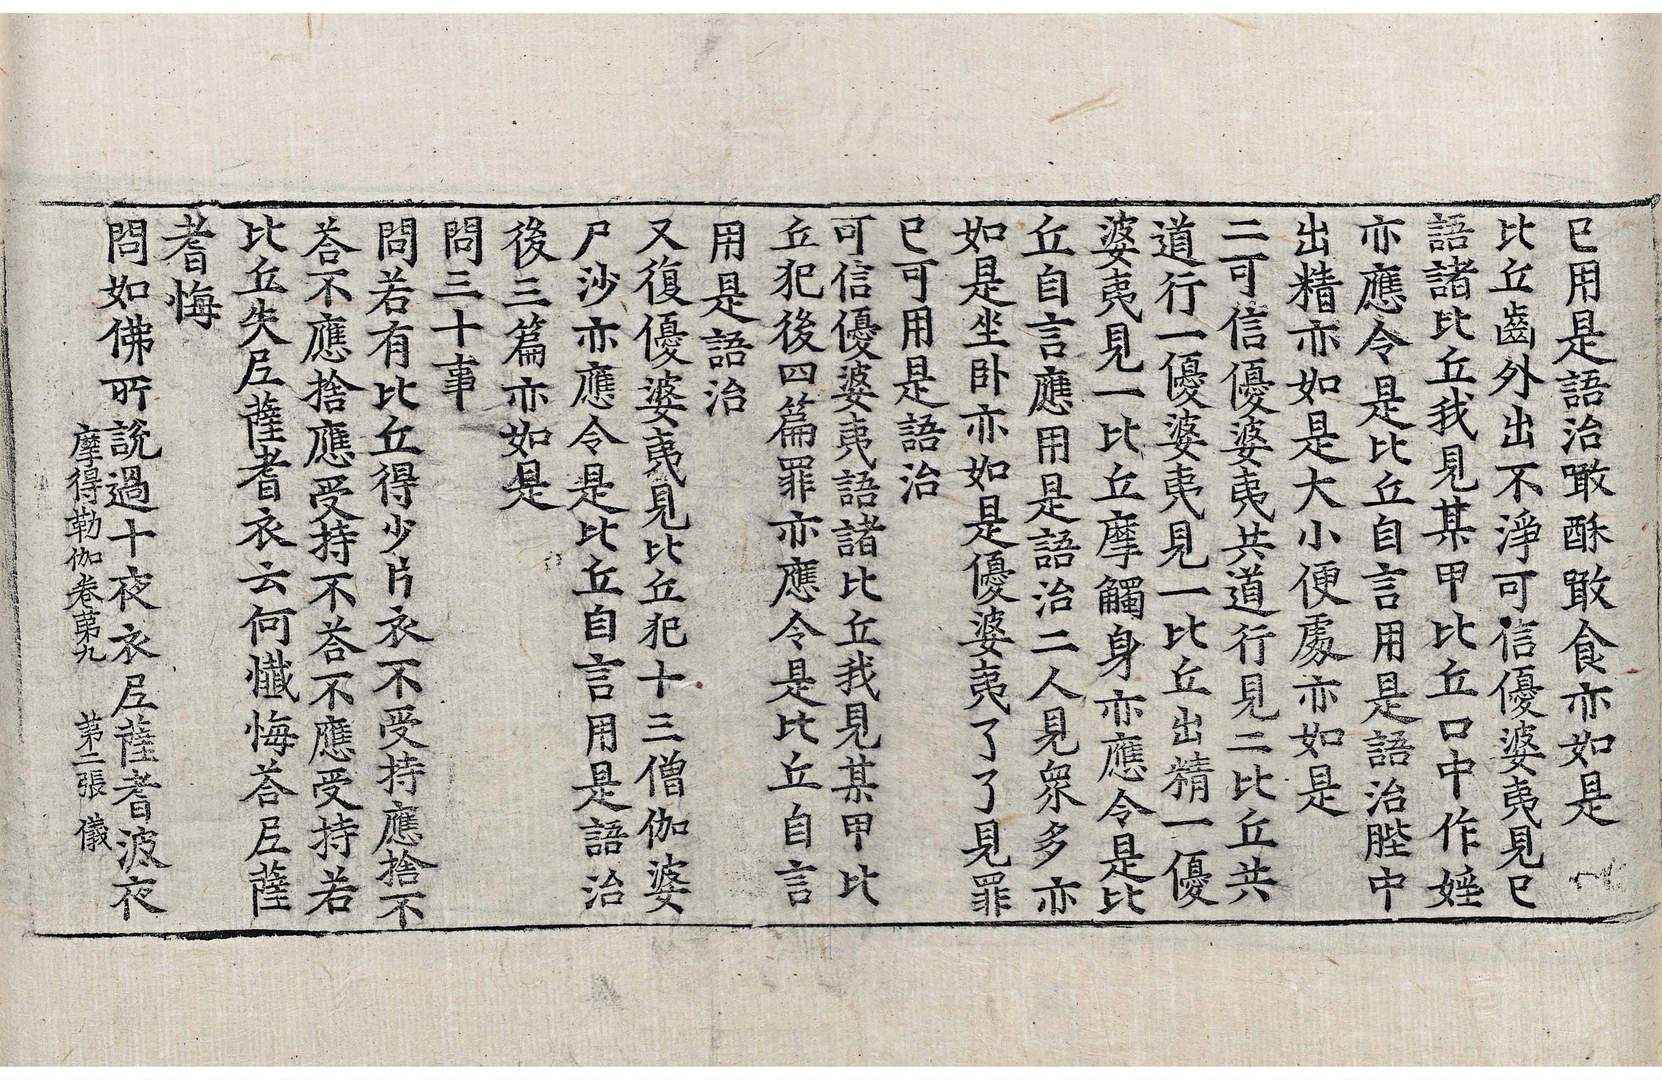 已用是語治噉酥噉食亦如是
比丘齒外出不淨可信優婆夷見已
語諸比丘我見某甲比丘口中作婬
亦應令是比丘自言用是語治髀中
出精亦如是大小便處亦如是
二可信優婆夷共道行見二比丘共
道行一優婆夷見一比丘出精一優
婆夷見一比丘摩觸身亦應令是比
丘自言應用是語治二人見衆多亦
如是坐卧亦如是優婆夷了了見罪
已可用是語治
可信優婆夷語諸比丘我見某甲比
丘犯後四篇罪亦應令是比丘自言
用是語治
又復優婆夷見比丘犯十三僧伽婆
尸沙亦應令是比丘自言用是語治
後三篇亦如是
問三十事
問若有比丘得少片衣不受持應捨不
荅不應捨應受持不荅不應受持若
比丘失尼薩耆衣云何懺悔荅尼薩
耆悔
問如佛所說過十夜衣尼薩耆波夜
摩得勒伽卷第九 第二張 儀